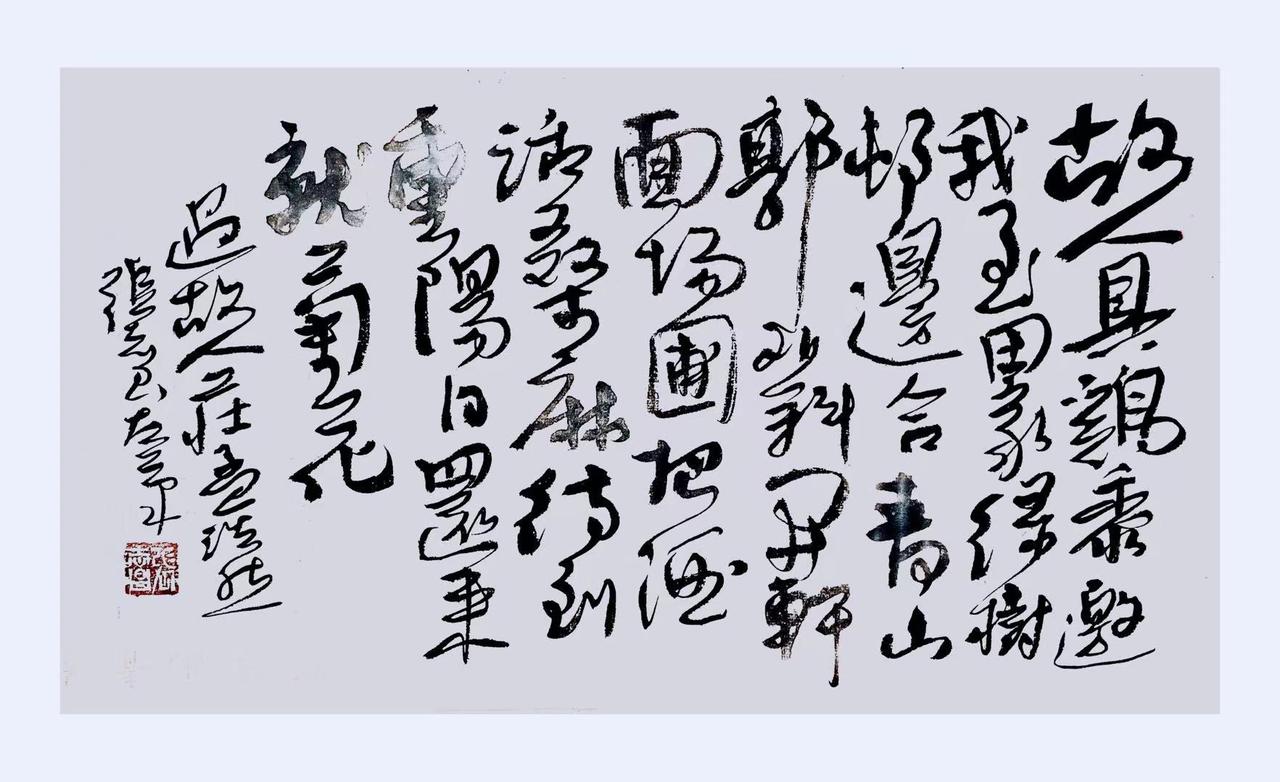 故人具鷄黍邀
我至田家綠樹
邨邊合青山
郭外斜開軒
面場圃把酒
話桑麻待到
重陽日還来
就菊花
過故人莊孟浩然
張志昌左